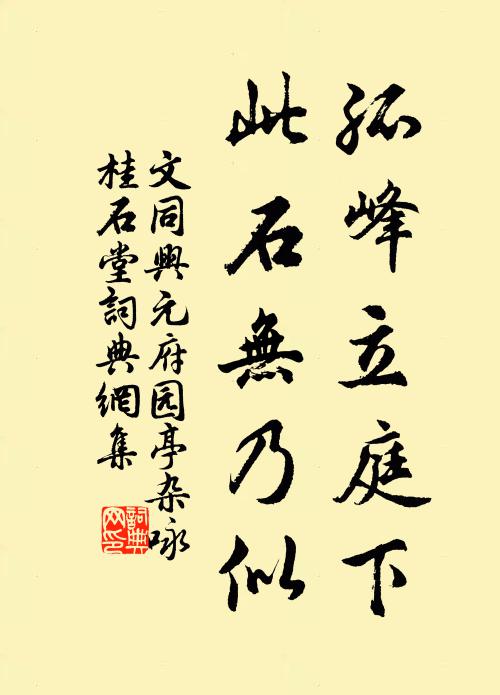 孤峰立庭下
此石無乃似
文同興元府园亭杂咏
桂石堂詞典網集
詞典
网印